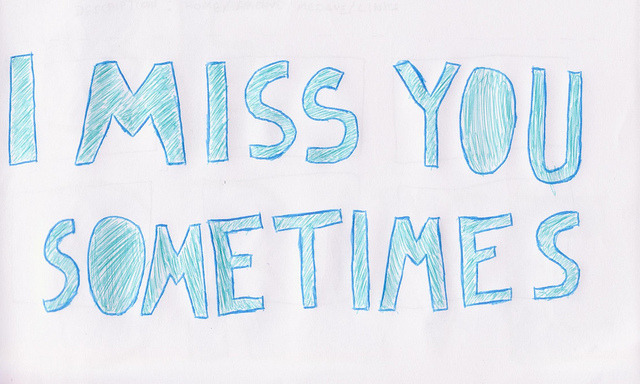 I MISS YOU
SOMETIMES